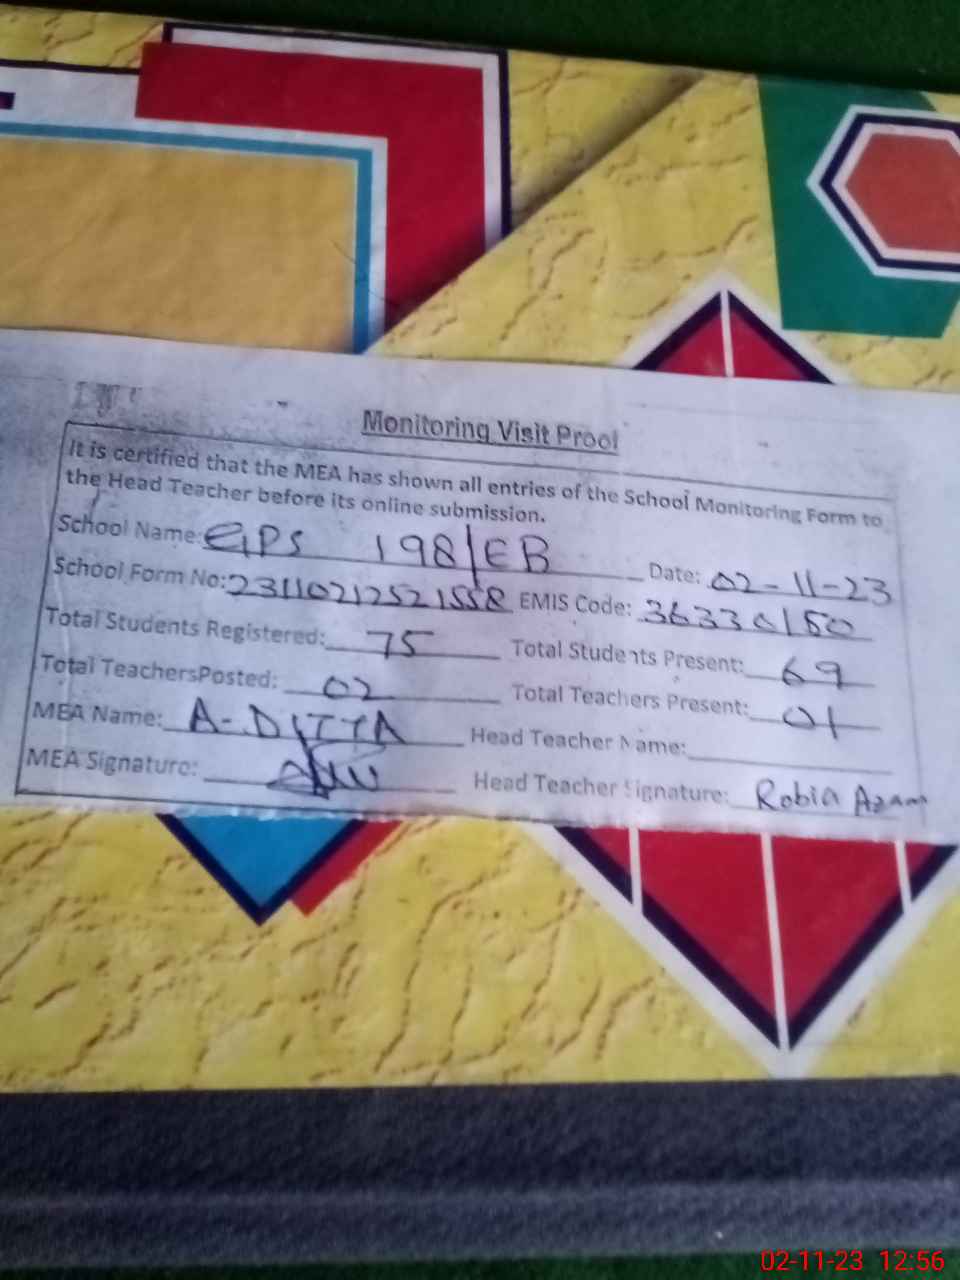 Monitoring Visit Proof
It is certified that the MEA has shown all entries of the School Monitoring Form to
the Head Teacher before its online submission.
School Name: GPS 198/EB Date: 02-11-23
School Form No: 231102125221558 EMIS Code: 36330150
Total Students Registered: 75 Total Students Present: 69
Total TeachersPosted: 02 Total Teachers Present: 01
MEA Name: A-DITTA Head Teacher Name:
MEA Signature: Head Teacher Signature: Robia Azam
02-11-23 12:56